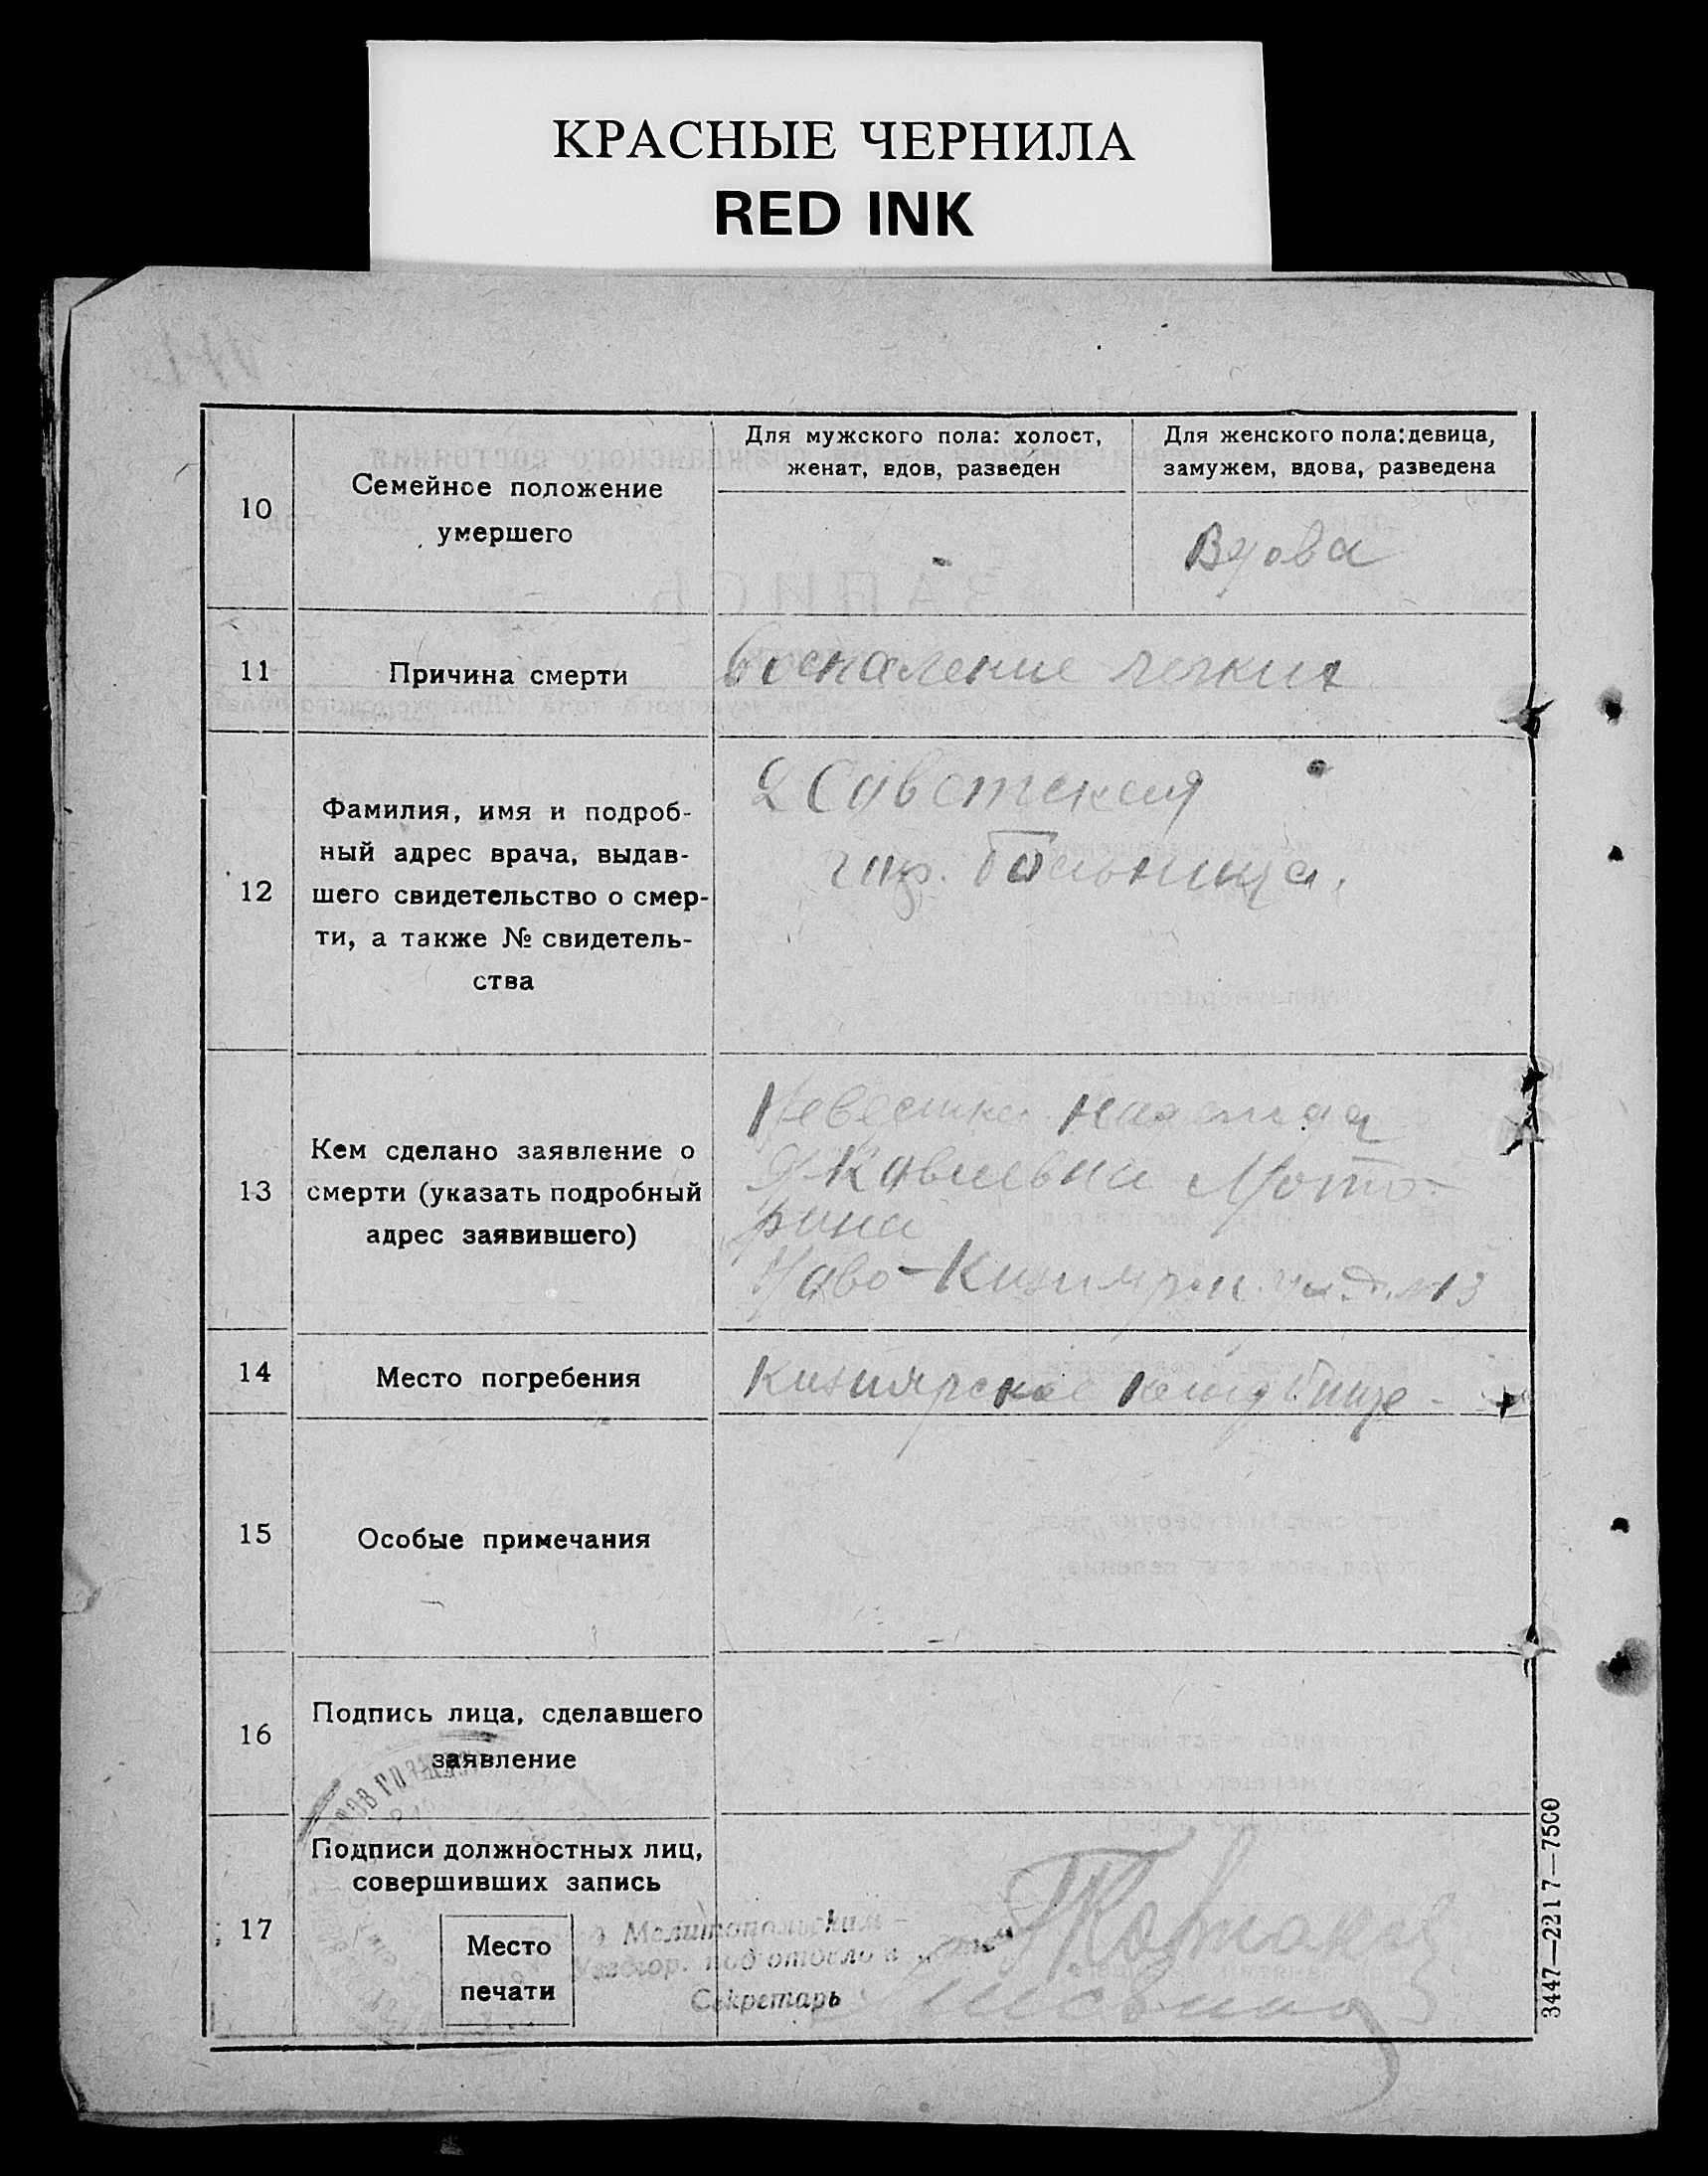 КРАСНЫЕ ЧЕРНИЛА
RED INK
10
Семейное положение
умершего
Для мужского пола: холост,
женат, вдов, разведен
Для женского пола: девица,
замужем, вдова, разведена
Вдова
11
Причина смерти
Воспаление легких
12
Фамилия, имя и подроб-
ный адрес врача, выдав-
шего свидетельство о смер-
ти, а также № свидетель-
ства
2 Советская
гор. больница.
13
Кем сделано заявление о
смерти (указать подробный
адрес заявившего)
Невестка
Яковлевна Мото-
рина
Ново-Кизияр. №13
14
Место погребения
Кизиярское кладбище
15
Особые примечания
16
Подпись лица, сделавшего
заявление
17
Подписи должностных лиц,
совершивших запись
Место
печати
Мелитопольским
под'отдело
Секретарь
3447—2217—7500